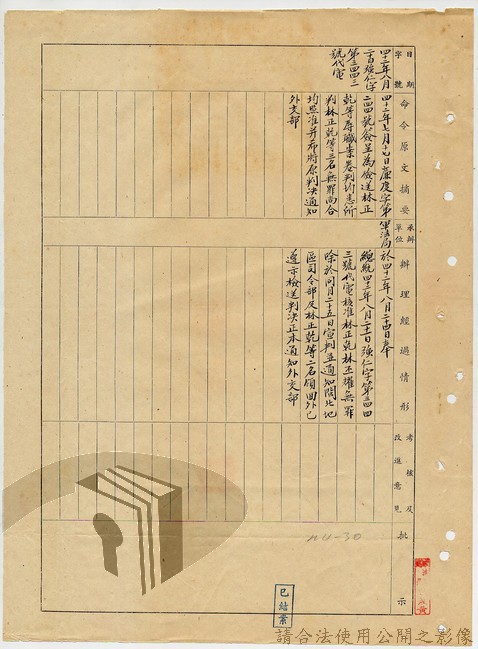 日期
字號
命令原文摘要
承辦單位
辦理經過情形
考核及改進意見
批示
四十二年八月
二十日強仁字
第三四四三
號代電
四十二年七月十七日廉度字第
二四四號簽呈為檢送林正
乾等辱職案卷判均悉所
判林正乾等三名無罪尚合
均照准并希將原判決通知
外交部
軍法局
於四十二年八月二十四日奉
總統四十二年八月二十日強仁字第三四四
三號代電核准林正乾林丕權無罪
除於同月二十五日宣判並通知閩北地
區司令部及林正乾等二名領回外已
遵示檢送判決正本通知外交部
已結案
請合法使用公開之影像